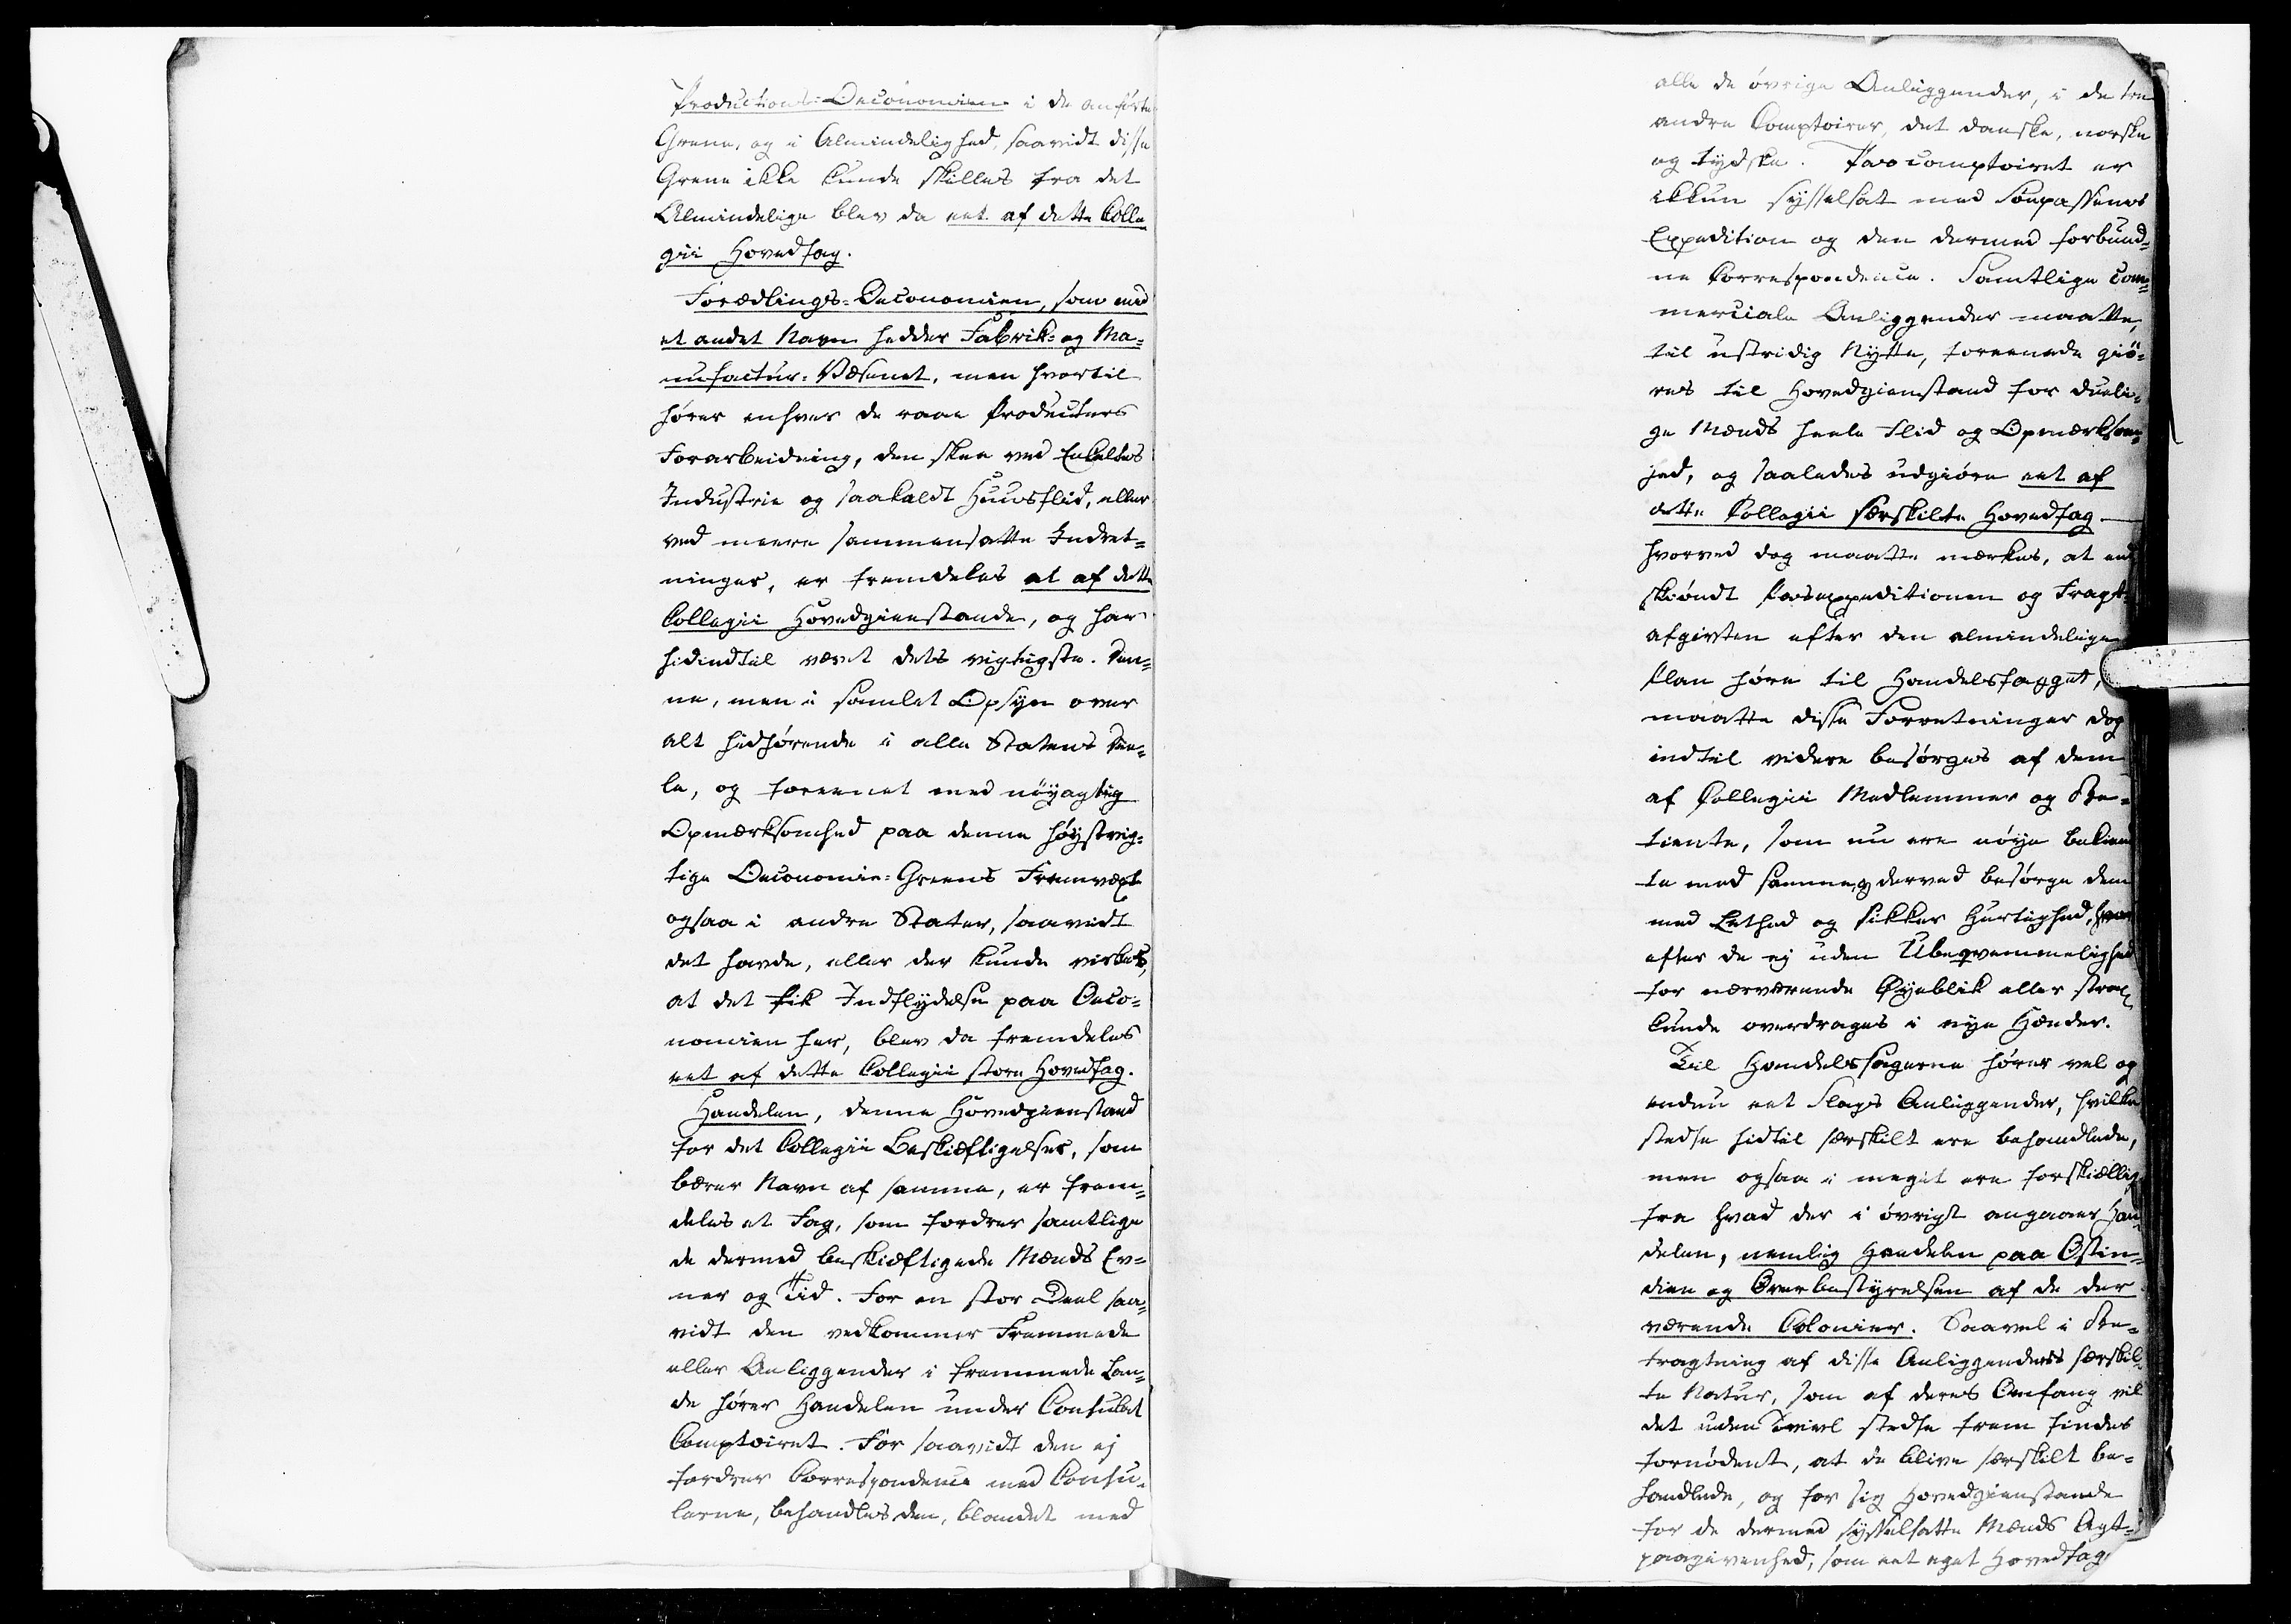 Productions-Oeconomien i de anførte
Grene, og i Almindelighed, saavidt disse
Grene ikke kunde skilles fra det
Almindelige blev da eet af dette Colle
gii Hovedfag.
Forædlings-Oeconomien, som med
et andet Navn hedder Fabrik- og Ma-
nufactur-Væsenet, men hvortil
hører enhver de raae Producters
Forarbeidning, den skee ved Enkeltes
Industrie og saakaldt Huusflid, eller
ved meere sammensatte Indret-
ninger, er fremdeles et af dette
Collegii Hovedgienstande, og har
hidindtil været dets vigtigste. Den-
ne, men i samlet Opsyn over
alt hidhørende i alle Statens Dee-
le, og foreenet med nøyagtig
Opmærksomhed paa denne høystvig-
tige Oeconomie-Greens Fremvæxt
ogsaa i andre Stater, saavidt
det havde, eller der kunde virkes,
at det fik Indflydelse paa Oeco-
nomien her, blev da fremdeles
eet af dette Collegii store Hovedfag.
Handelen, denne Hovedgienstand
for det Collegii Beskiæftigelser, som
bærer Navn af samme, er frem-
deles et Fag, som fordrer samtlige
de dermed beskiæftigede Mænds Ev-
ner og Tid. For en stor Deel saa-
vidt den vedkommer Fremmede
eller Anliggender i fremmede Lan-
de hører Handelen under Consulat
Comptoiret. For saavidt den ej
fordrer Correspondence med Consu-
lerne, behandles den, blandet med
alle de øvrige Anliggender, i de tre
andre Comptoirer, det danske, norske
og tydske. Pascomptoiret er
ikkun sysselsat med Søepassenes
Expedition og den dermed forbund-
ne Correspondence. Samtlige Com-
merciale Anliggender maatte,
til ustridig Nytte, foreenede giø-
res til Hovedgienstand for dueli-
ge Mænds heele Flid og Opmærksom-
hed, og saaledes udgiøre eet af
dette Collegii særskilte Hovedfag —
hvorved dog maatte mærkes, at end
skiøndt Pasexpeditionen og Fragt-
afgivten efter den almindelige
Plan høre til Handelsfagget,
maatte disse Forretninger dog
indtil videre besørges af dem
af Collegii Medlemmer og Be-
tiente, som nu ere nøye bekiend
te med samme, og derved besørge dem
med Lethed og sikker Hurtighed, hvor
efter de ej uden Ubeqvemmelighed
for nærværende Øyeblik eller strax
kunde overdrages i nye Hænder.
Til Handelssagerne hører vel og
endnu eet Slags Anliggender, hvilke
stedse hidtil særskilt ere behandlede,
men ogsaa i meget ere forskiællig
fra hvad der i øvrigt angaaer Han-
delen, nemlig Handelen paa Ostin-
dien og Overbestyrelsen af de der
værende Colonier. Saavel i Be-
tragtning af disse Anliggenders særskil-
te Natur, som af deres Omfang vil
det uden Tvivl stedse frem findes
fornødent, at de blive særskilt be-
handlede, og for sig Hovedgienstande
for de dermed sysselsatte Mænds Agt-
paagivenhed, som eet eget Hovedfag